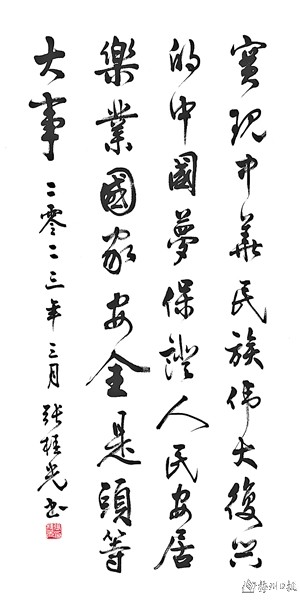 實現中華民族偉大復興
的中國夢保證人民安居
樂業國家安全是頭等
大事 二零二三年三月 張桂光書
梅州日报